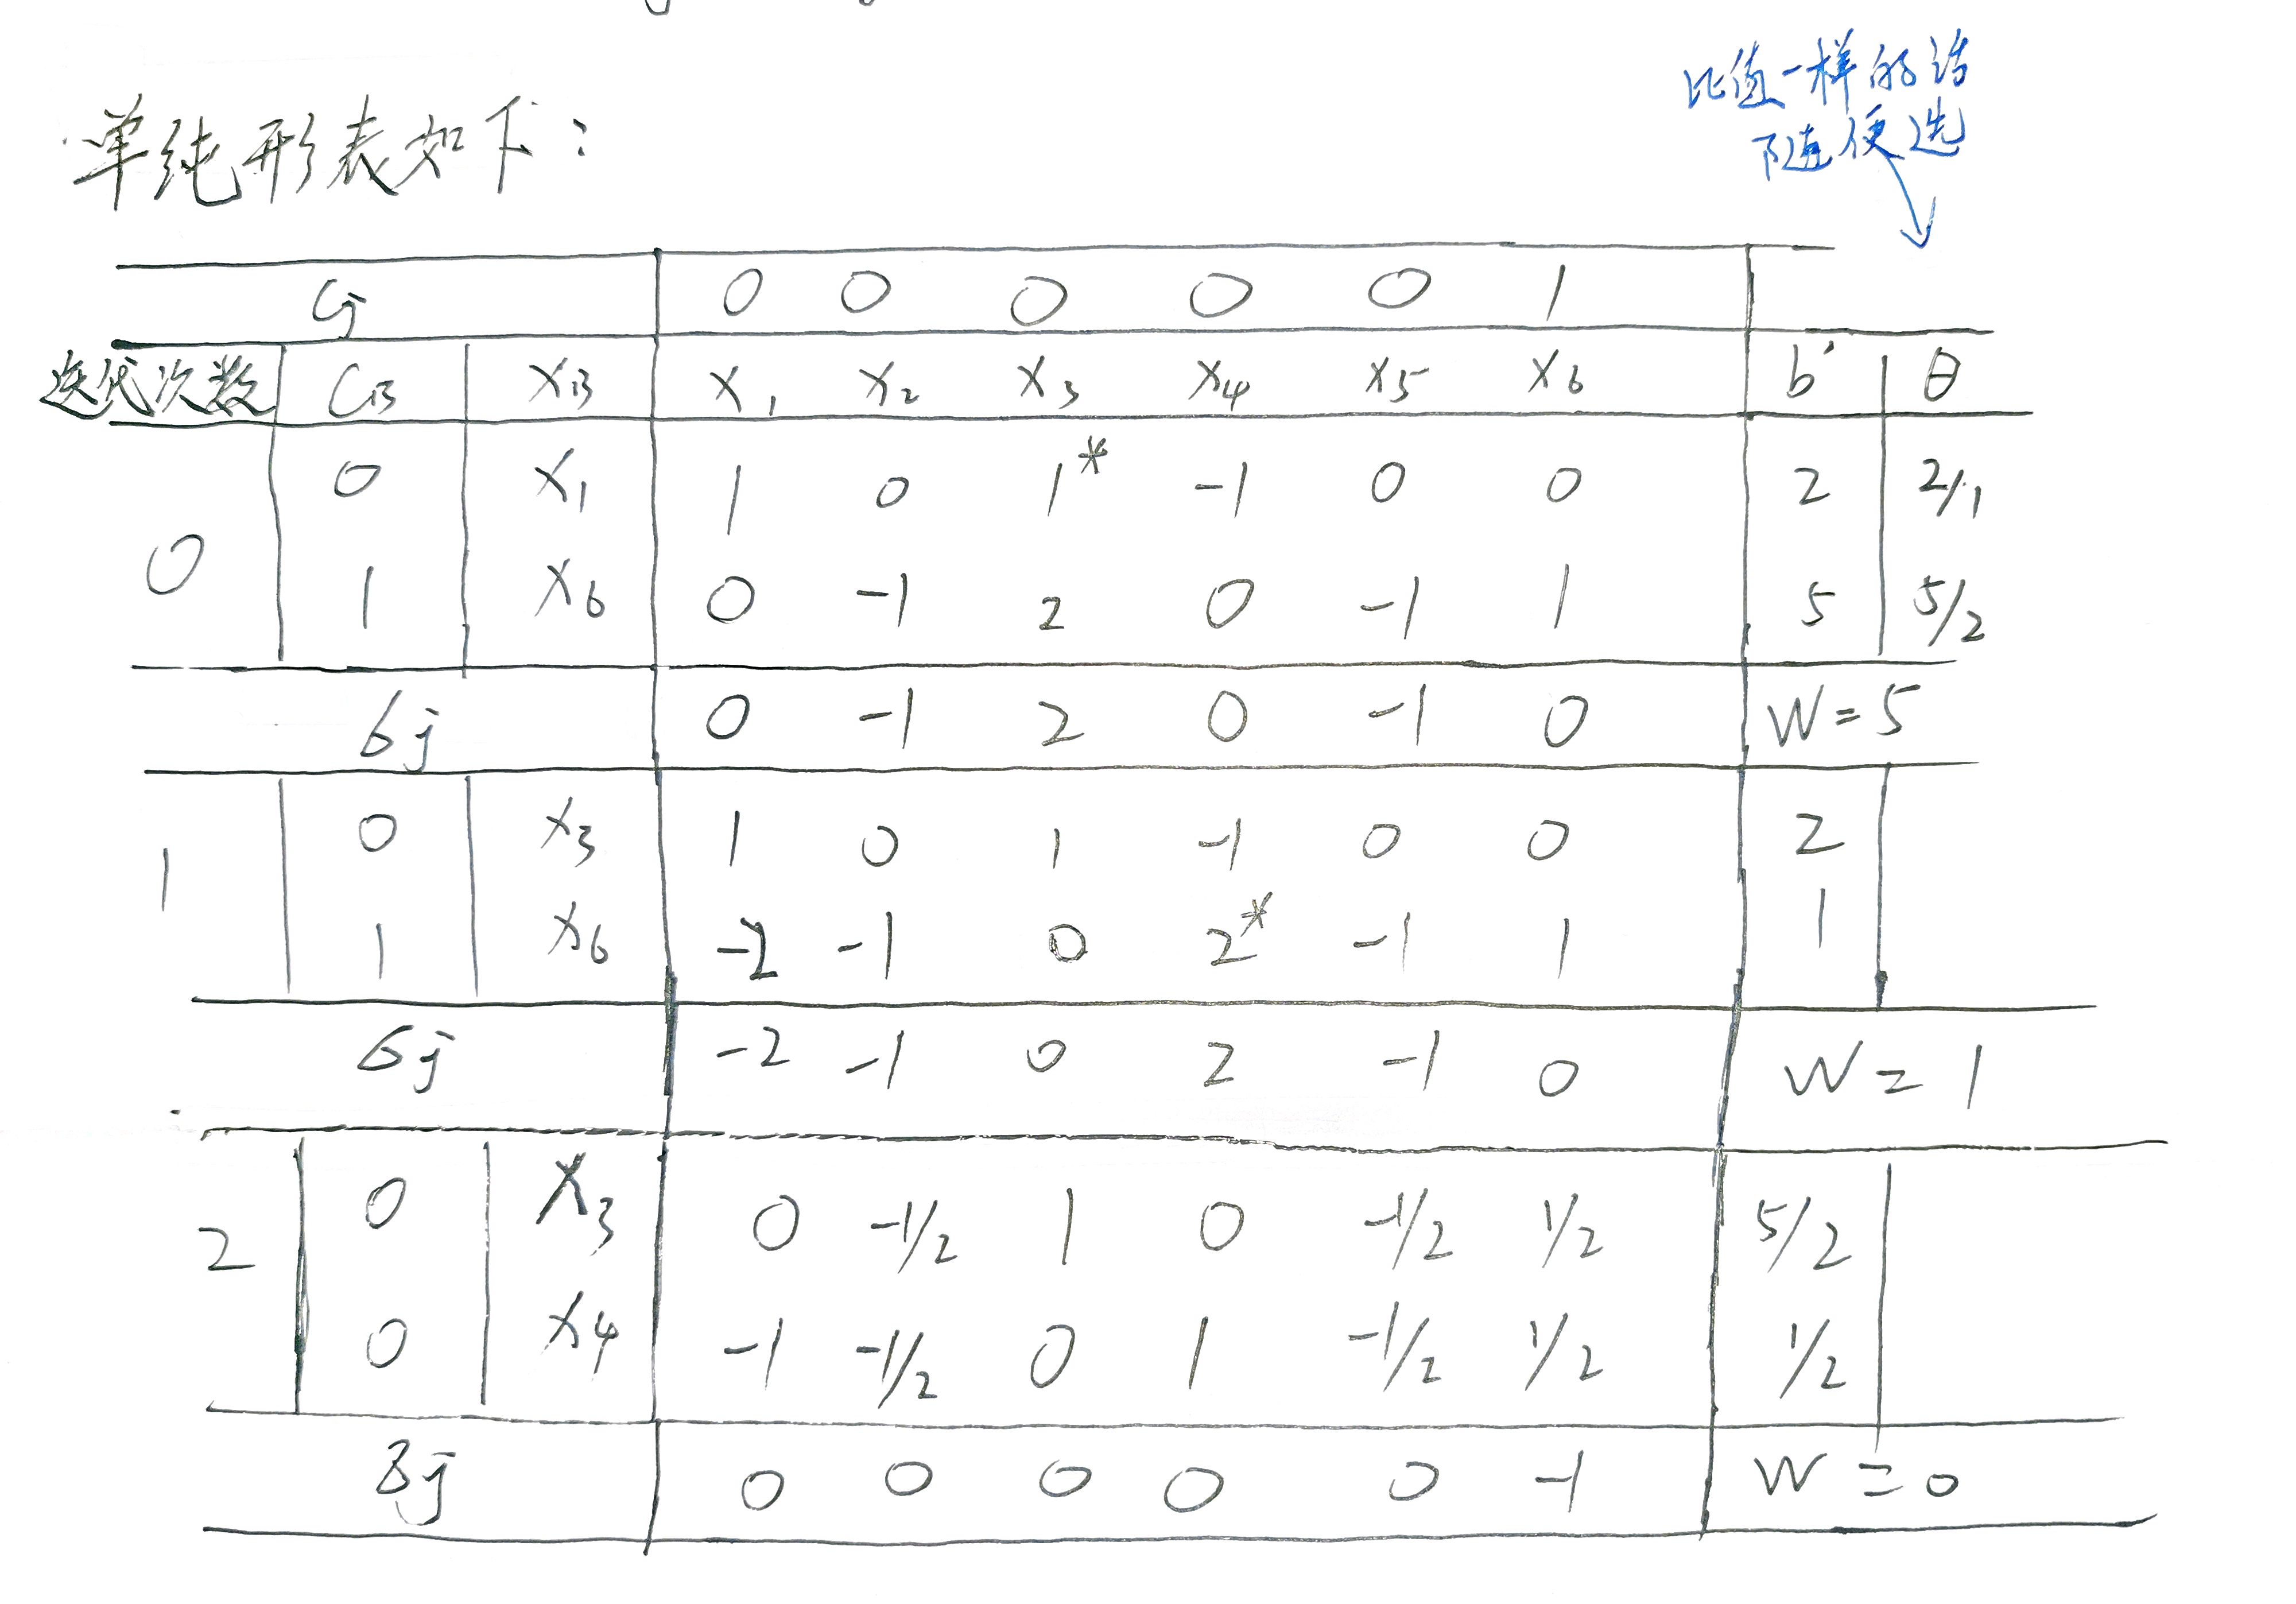 比值一样的话
随便选
单纯形表如下：
Cj 0 0 0 0 0 1
迭代次数 CB XB X1 X2 X3 X4 X5 X6 b' θ
0 X1 1 0 1* -1 0 0 2 2/1
0
1 X6 0 -1 2 0 -1 1 5 5/2
6j 0 -1 2 0 -1 0 W=5
0 X3 1 0 1 -1 0 0 2
1
1 X6 -2 -1 0 2* -1 1 1
6j -2 -1 0 2 -1 0 W=1
0 X3 0 -1/2 1 0 -1/2 1/2 5/2
2
0 X4 -1 -1/2 0 1 -1/2 1/2 1/2
8j 0 0 0 0 0 -1 W=0